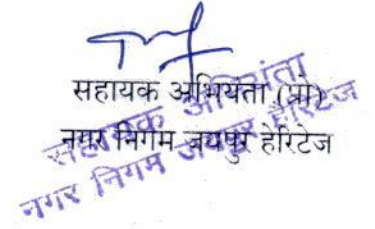 सहायक अभियंता (प्रो)
नगर निगम जयपुर हेरिटेज
सहायक अभियंता
नगर निगम जयपुर हैरिटेज